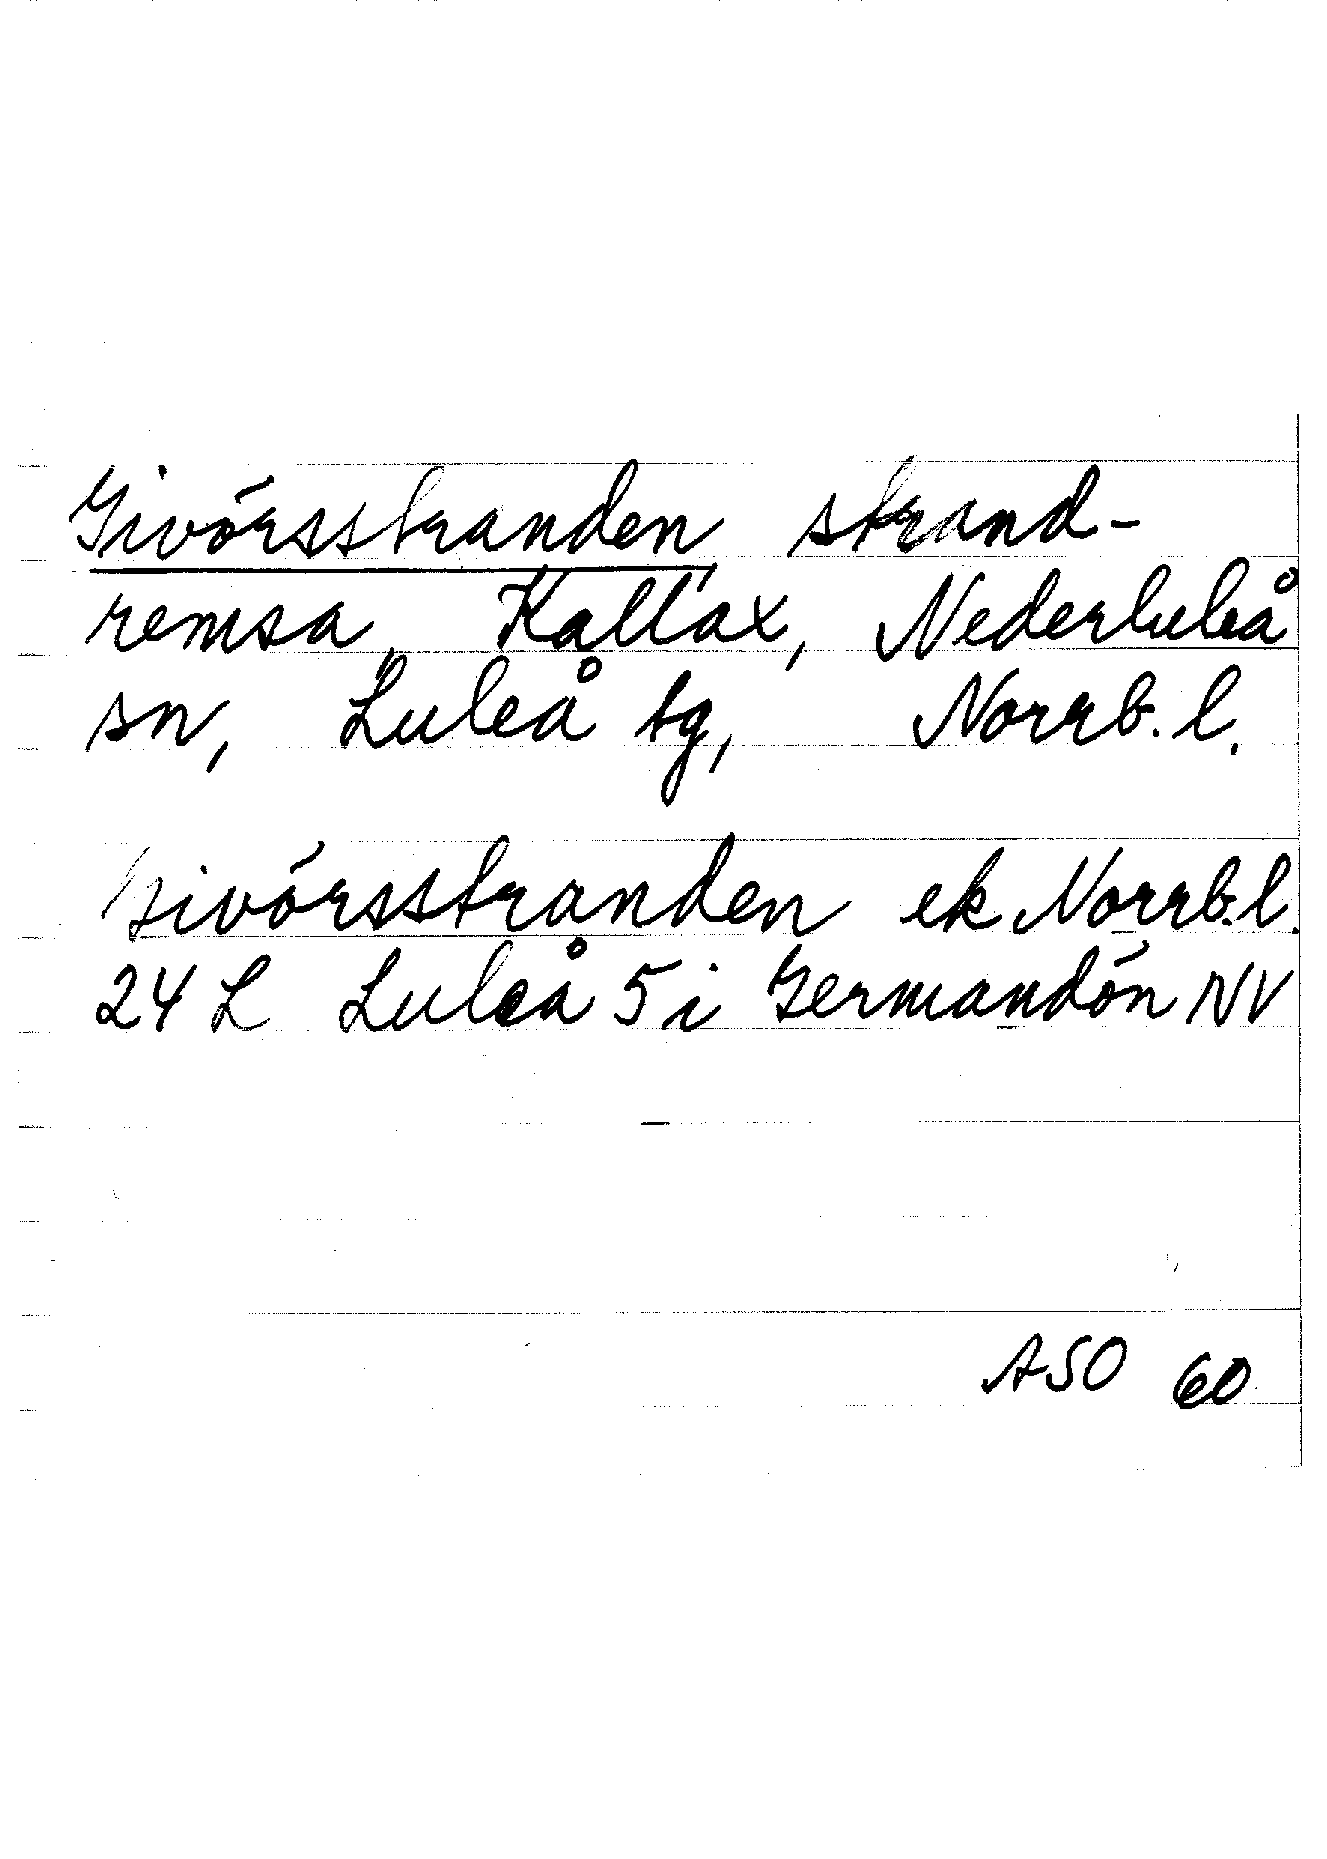 Givörsstranden, strand-
remsa, Kallax, Nederluleå
sn, Luleå tg, Norrb. l.
Givörsstranden ek Norrb. l.
24 L Luleå 5 i Germandön NV
ASO 60